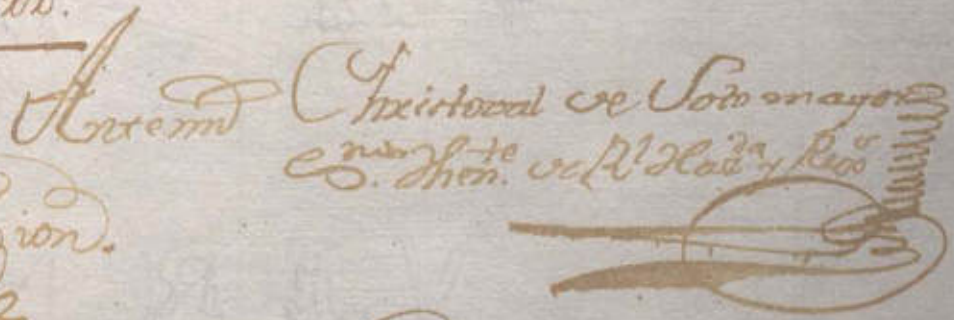 Antemi Christoval de Sotomayor
Es.no Then.te de Rl Haz.da y Reg.o
ion.